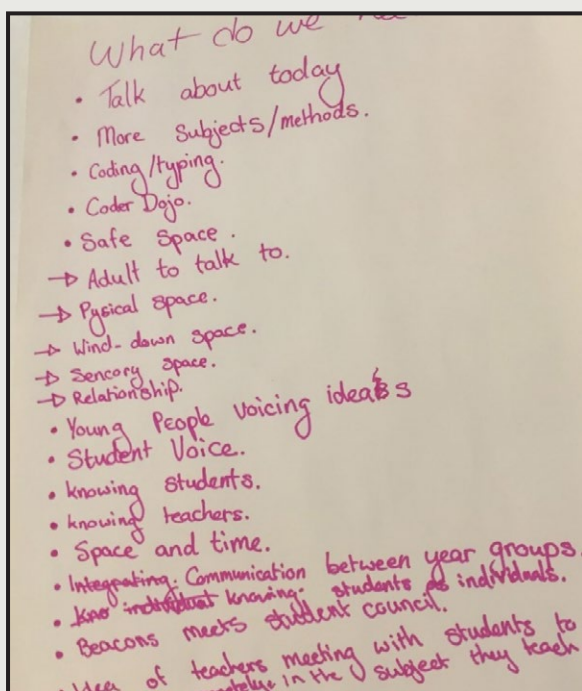 What do we
• Talk about today
• More Subjects/methods.
• Coding/typing.
• Coder Dojo.
• Safe Space.
→ Adult to talk to.
→ Pysical space.
→ Wind-down space.
→ Sencory space.
→ Relationship.
• Young People Voicing ideas
• Student Voice.
• knowing students.
• knowing teachers.
• Space and time.
• Integrating. Communication between year groups.
• Kno individual knowing. students as individuals.
• Beacons meets student council.
Idea of teachers meeting with students to
in the subject they teach